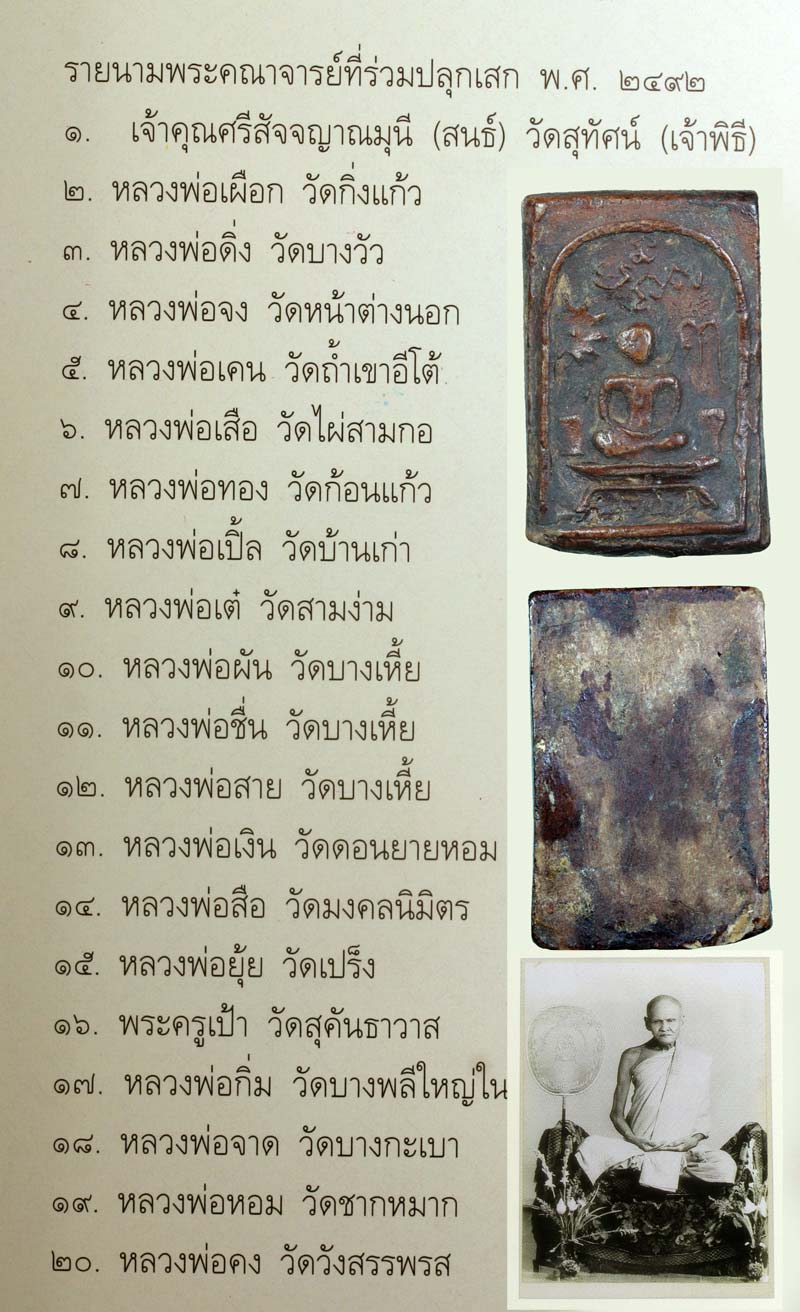 รายนามพระคณาจารย์ที่ร่วมปลุกเสก พ.ศ. ๒๔๙๒
๑. เจ้าคุณศรีสัจจญาณมุนี (สนธ์) วัดสุทัศน์ (เจ้าพิธี)
๒. หลวงพ่อเผือก วัดกิ่งแก้ว
๓. หลวงพ่อดิ่ง วัดบางวัว
๔. หลวงพ่อจง วัดหน้าต่างนอก
๕. หลวงพ่อเคน วัดถ้ำเขาอีโต้
๖. หลวงพ่อเสือ วัดไผ่สามกอ
๗. หลวงพ่อทอง วัดก้อนแก้ว
๘. หลวงพ่อเปิ้ล วัดบ้านเก่า
๙. หลวงพ่อเต๋ วัดสามง่าม
๑๐. หลวงพ่อผัน วัดบางเหี้ย
๑๑. หลวงพ่อชื่น วัดบางเหี้ย
๑๒. หลวงพ่อสาย วัดบางเหี้ย
๑๓. หลวงพ่อเงิน วัดดอนยายหอม
๑๔. หลวงพ่อสือ วัดมงคลนิมิตร
๑๕. หลวงพ่อยุ้ย วัดเปร็ง
๑๖. พระครูเป้า วัดสุคันธาวาส
๑๗. หลวงพ่อกิ่ม วัดบางพลีใหญ่ใน
๑๘. หลวงพ่อจาด วัดบางกะเบา
๑๙. หลวงพ่อหอม วัดชากหมาก
๒๐. หลวงพ่อคง วัดวังสรรพรส